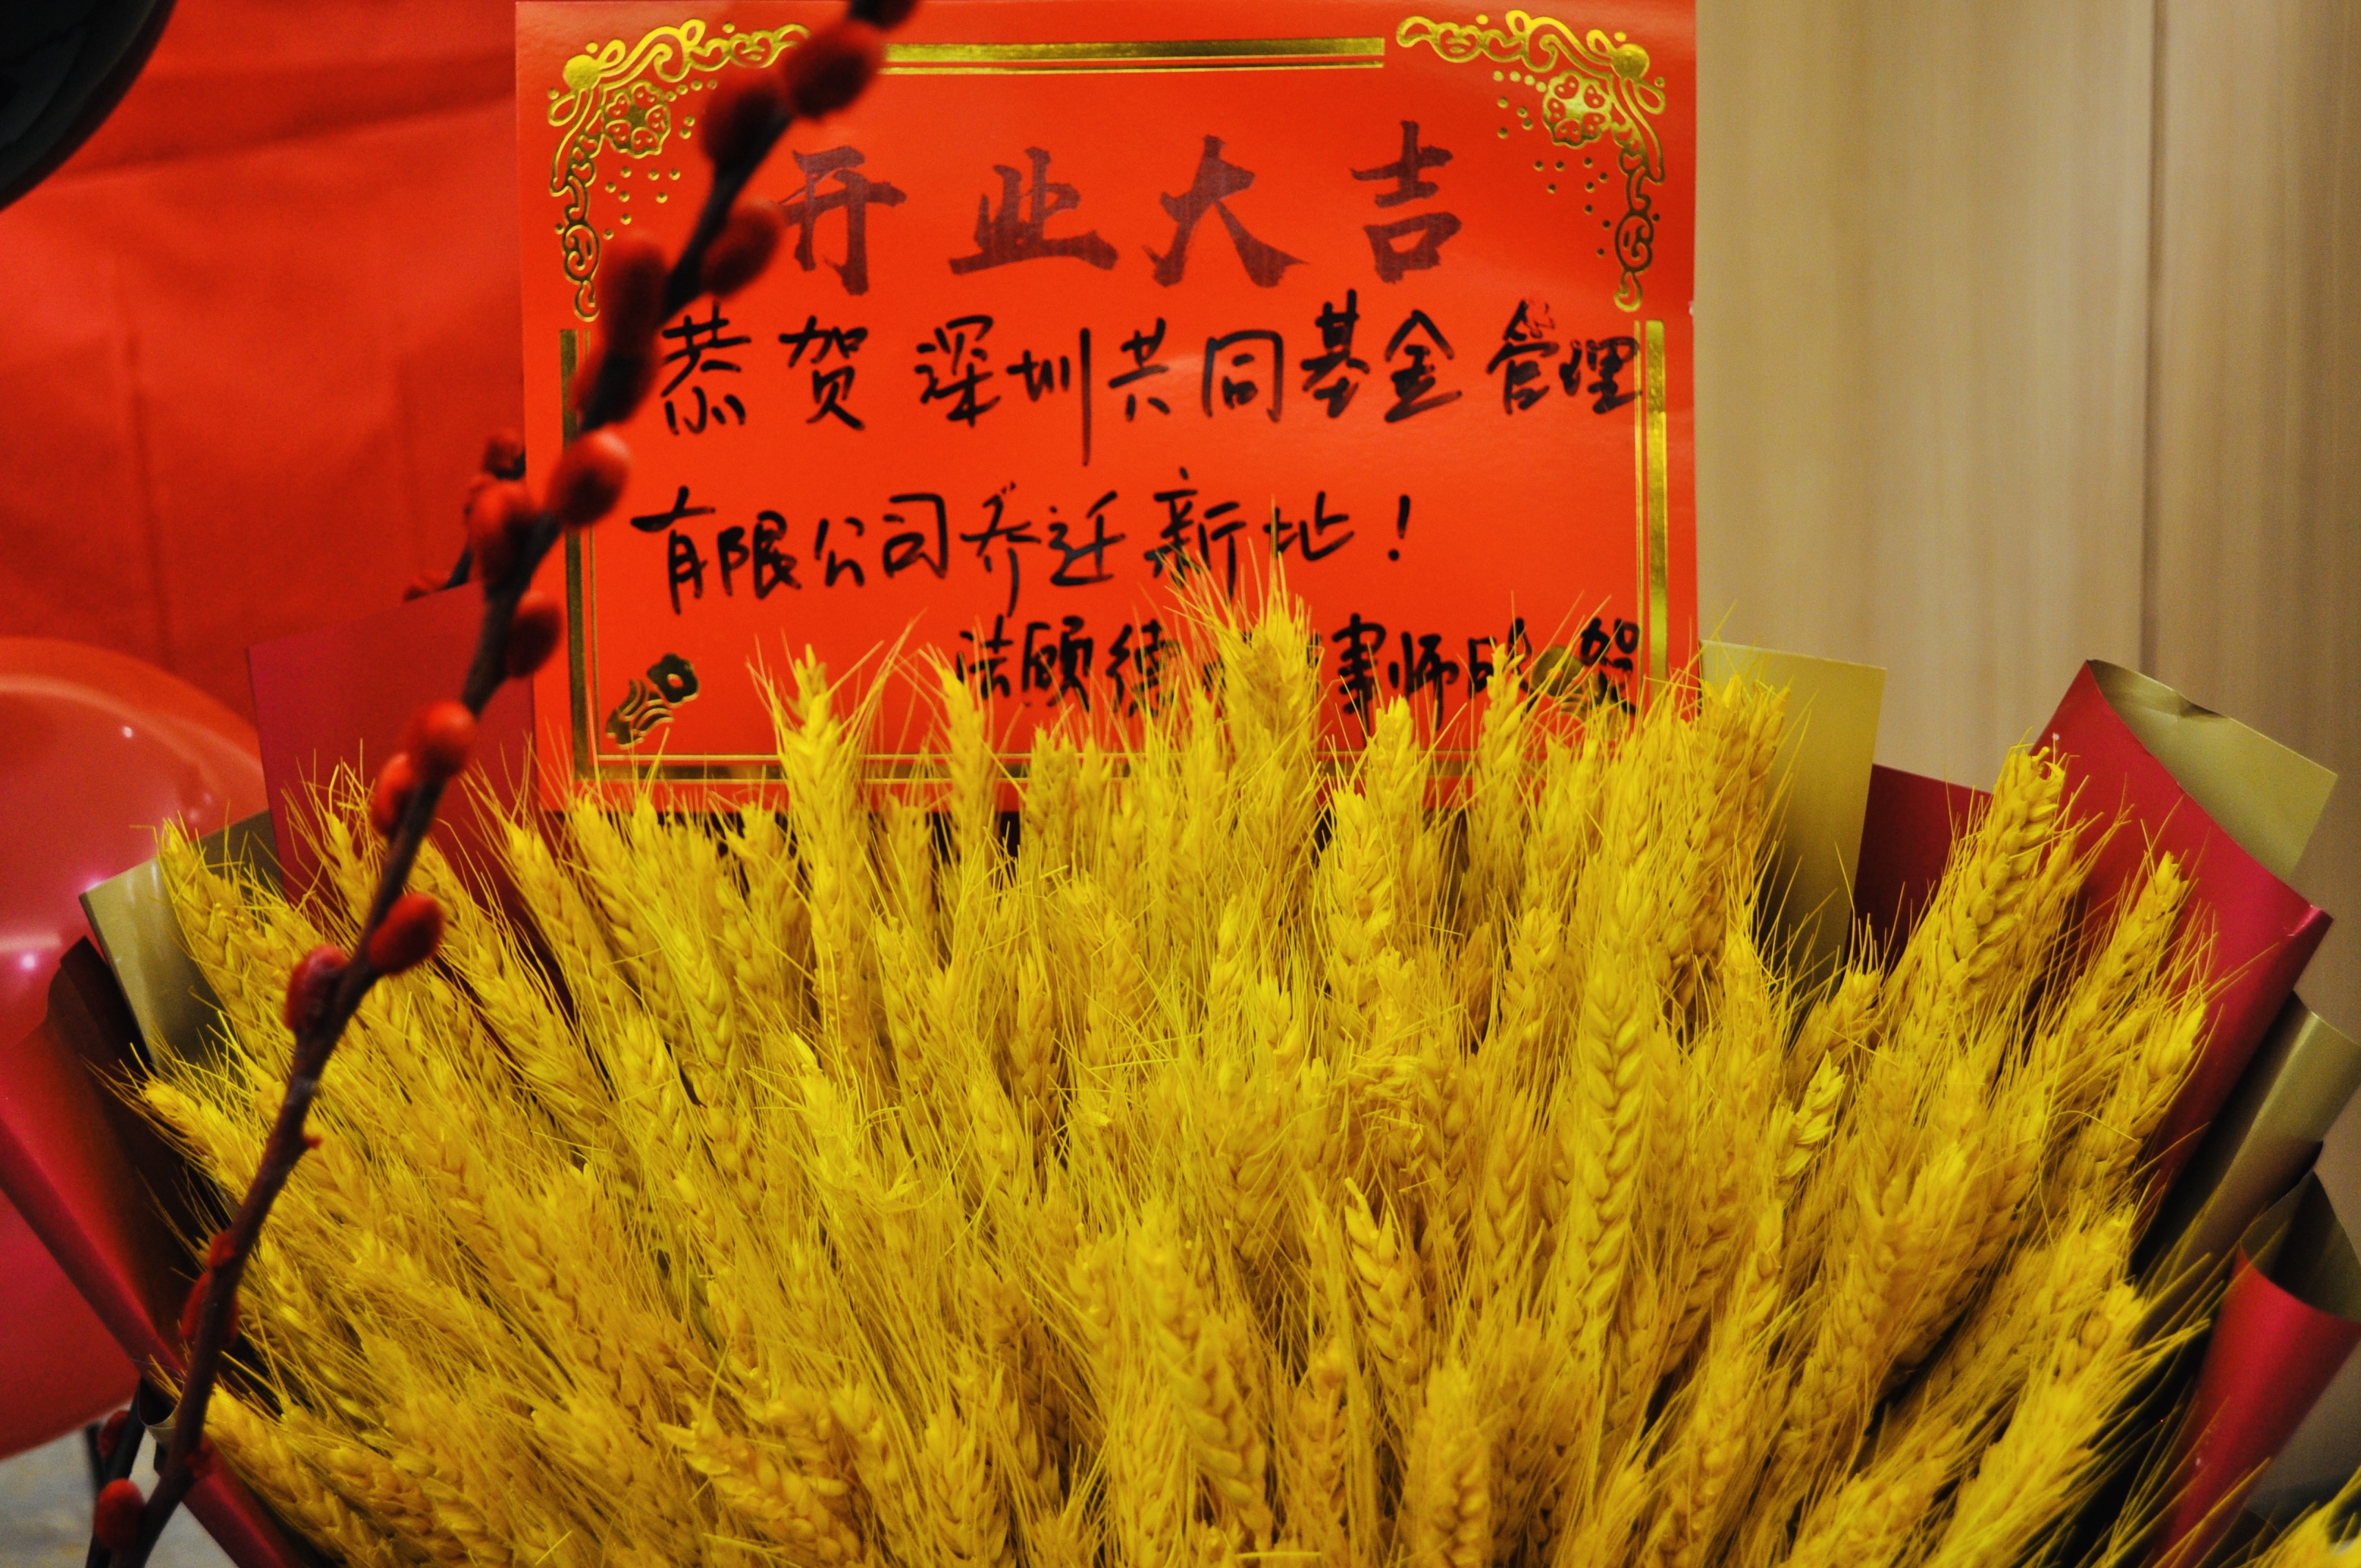 开业大吉
恭贺深圳共同基金管理
有限公司乔迁新址！
法顾德 律师 贺